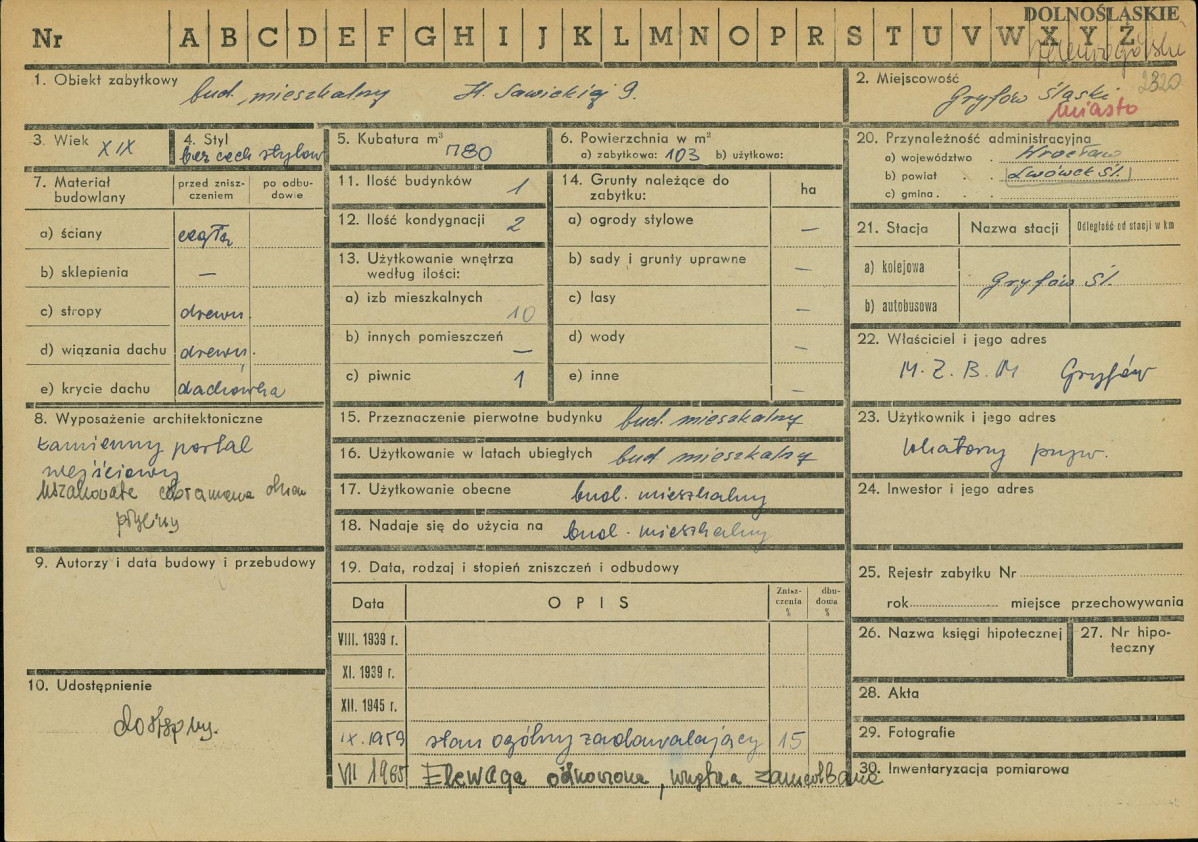 DOLNOŚLĄSKIE
Nr A B C D E F G H I J K L M N O P R S T U V W X Y Z
jeleniogórskie
1. Obiekt zabytkowy
bud. mieszkalny H. Sawickiej 9.
2. Miejscowość
2320
Gryfów Śląski
miasto
3. Wiek XIX
4. Styl
bez cech stylow
5. Kubatura m³ 780
6. Powierzchnia w m²
a) zabytkowa: 103 b) użytkowa:
7. Materiał budowlany
przed zniszczeniem
po odbudowie
a) ściany cegła
b) sklepienia —
c) stropy drewn.
d) wiązania dachu drewn.
e) krycie dachu dachówka
8. Wyposażenie architektoniczne
kamienny portal
wejściowy
9. Autorzy i data budowy i przebudowy
10. Udostępnienie
dostępny.
11. Ilość budynków 1
12. Ilość kondygnacji 2
13. Użytkowanie wnętrza
według ilości:
a) izb mieszkalnych 10
b) innych pomieszczeń —
c) piwnic 1
14. Grunty należące do
zabytku:
ha
a) ogrody stylowe —
b) sady i grunty uprawne —
c) lasy —
d) wody —
e) inne —
15. Przeznaczenie pierwotne budynku bud. mieszkalny
16. Użytkowanie w latach ubiegłych bud mieszkalny
17. Użytkowanie obecne bud. mieszkalny
18. Nadaje się do użycia na bud. mieszkalny
19. Data, rodzaj i stopień zniszczeń i odbudowy
Data OPIS Zniszczenia % dbudowa %
VIII. 1939 r.
XI. 1939 r.
XII. 1945 r.
IX. 1959 stan ogólny zadawalający 15
VII 1965 Elewacja odnowiona, wnętrza
20. Przynależność administracyjna
a) województwo . Wrocław
b) powiat . . Lwówek Śl.
c) gmina . .
21. Stacja Nazwa stacji Odległość od stacji w km
a) kolejowa
Gryfów Śl.
b) autobusowa
22. Właściciel i jego adres
M. Z. B. M Gryfów
23. Użytkownik i jego adres
lokatorzy pryw.
24. Inwestor i jego adres
25. Rejestr zabytku Nr
rok miejsce przechowywania
26. Nazwa księgi hipotecznej
27. Nr hipoteczny
28. Akta
29. Fotografie
30. Inwentaryzacja pomiarowa